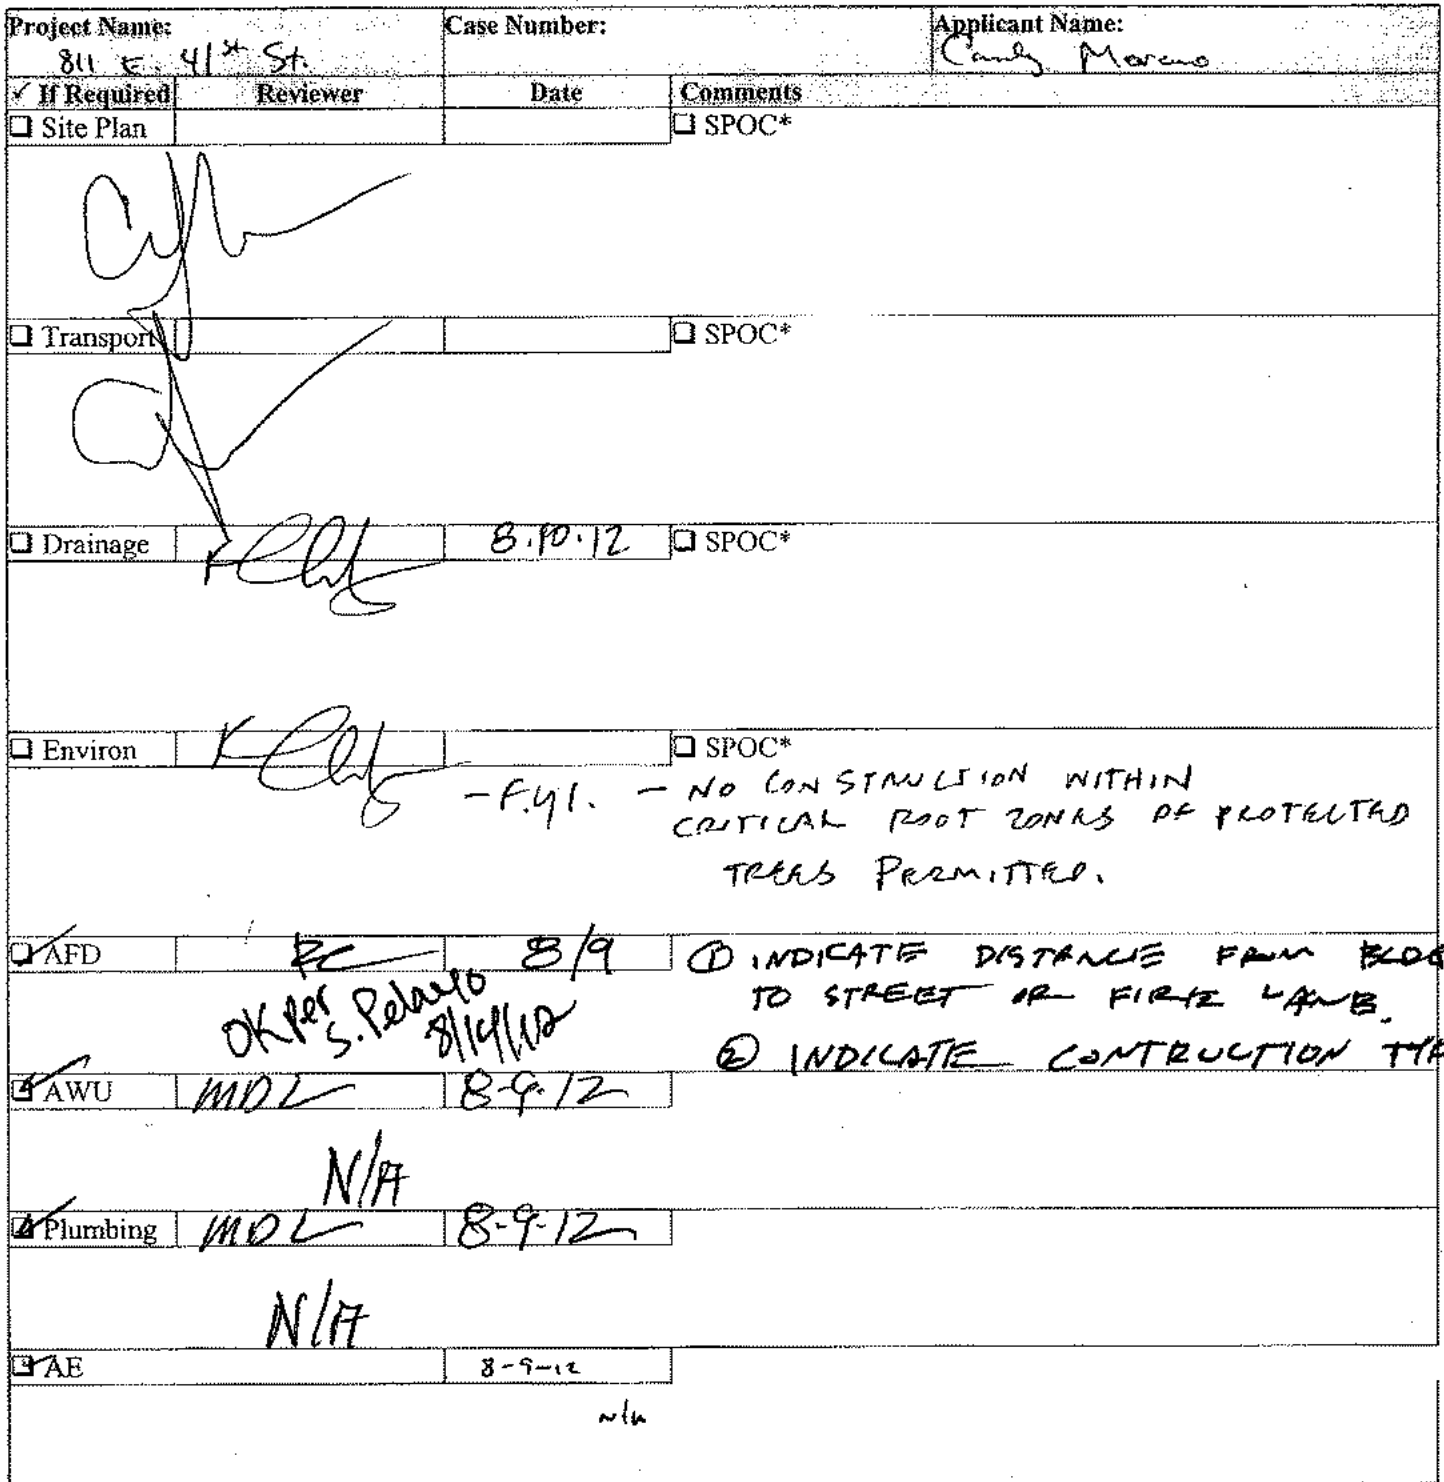 Project Name: Case Number: Applicant Name:
811 E. 41st St. Moreno
✓ If Required Reviewer Date Comments
☐ Site Plan ☐ SPOC*
☐ Transport ☐ SPOC*
☐ Drainage 8.10.12 ☐ SPOC*
☐ Environ ☐ SPOC*
- F.Y.I. - NO CONSTRUCTION WITHIN
CRITICAL ROOT ZONES OF PROTECTED
TREES PERMITTED.
AFD RC 8/9 ① INDICATE DISTANCE FROM BLDG
TO STREET OR FIRE LANE.
OK per S. Pelayo 8/14/12
② INDICATE CONTRUCTION TYP
AWU MDL 8-9-12
N/A
Plumbing MDL 8-9-12
N/A
AE 8-9-12
n/a